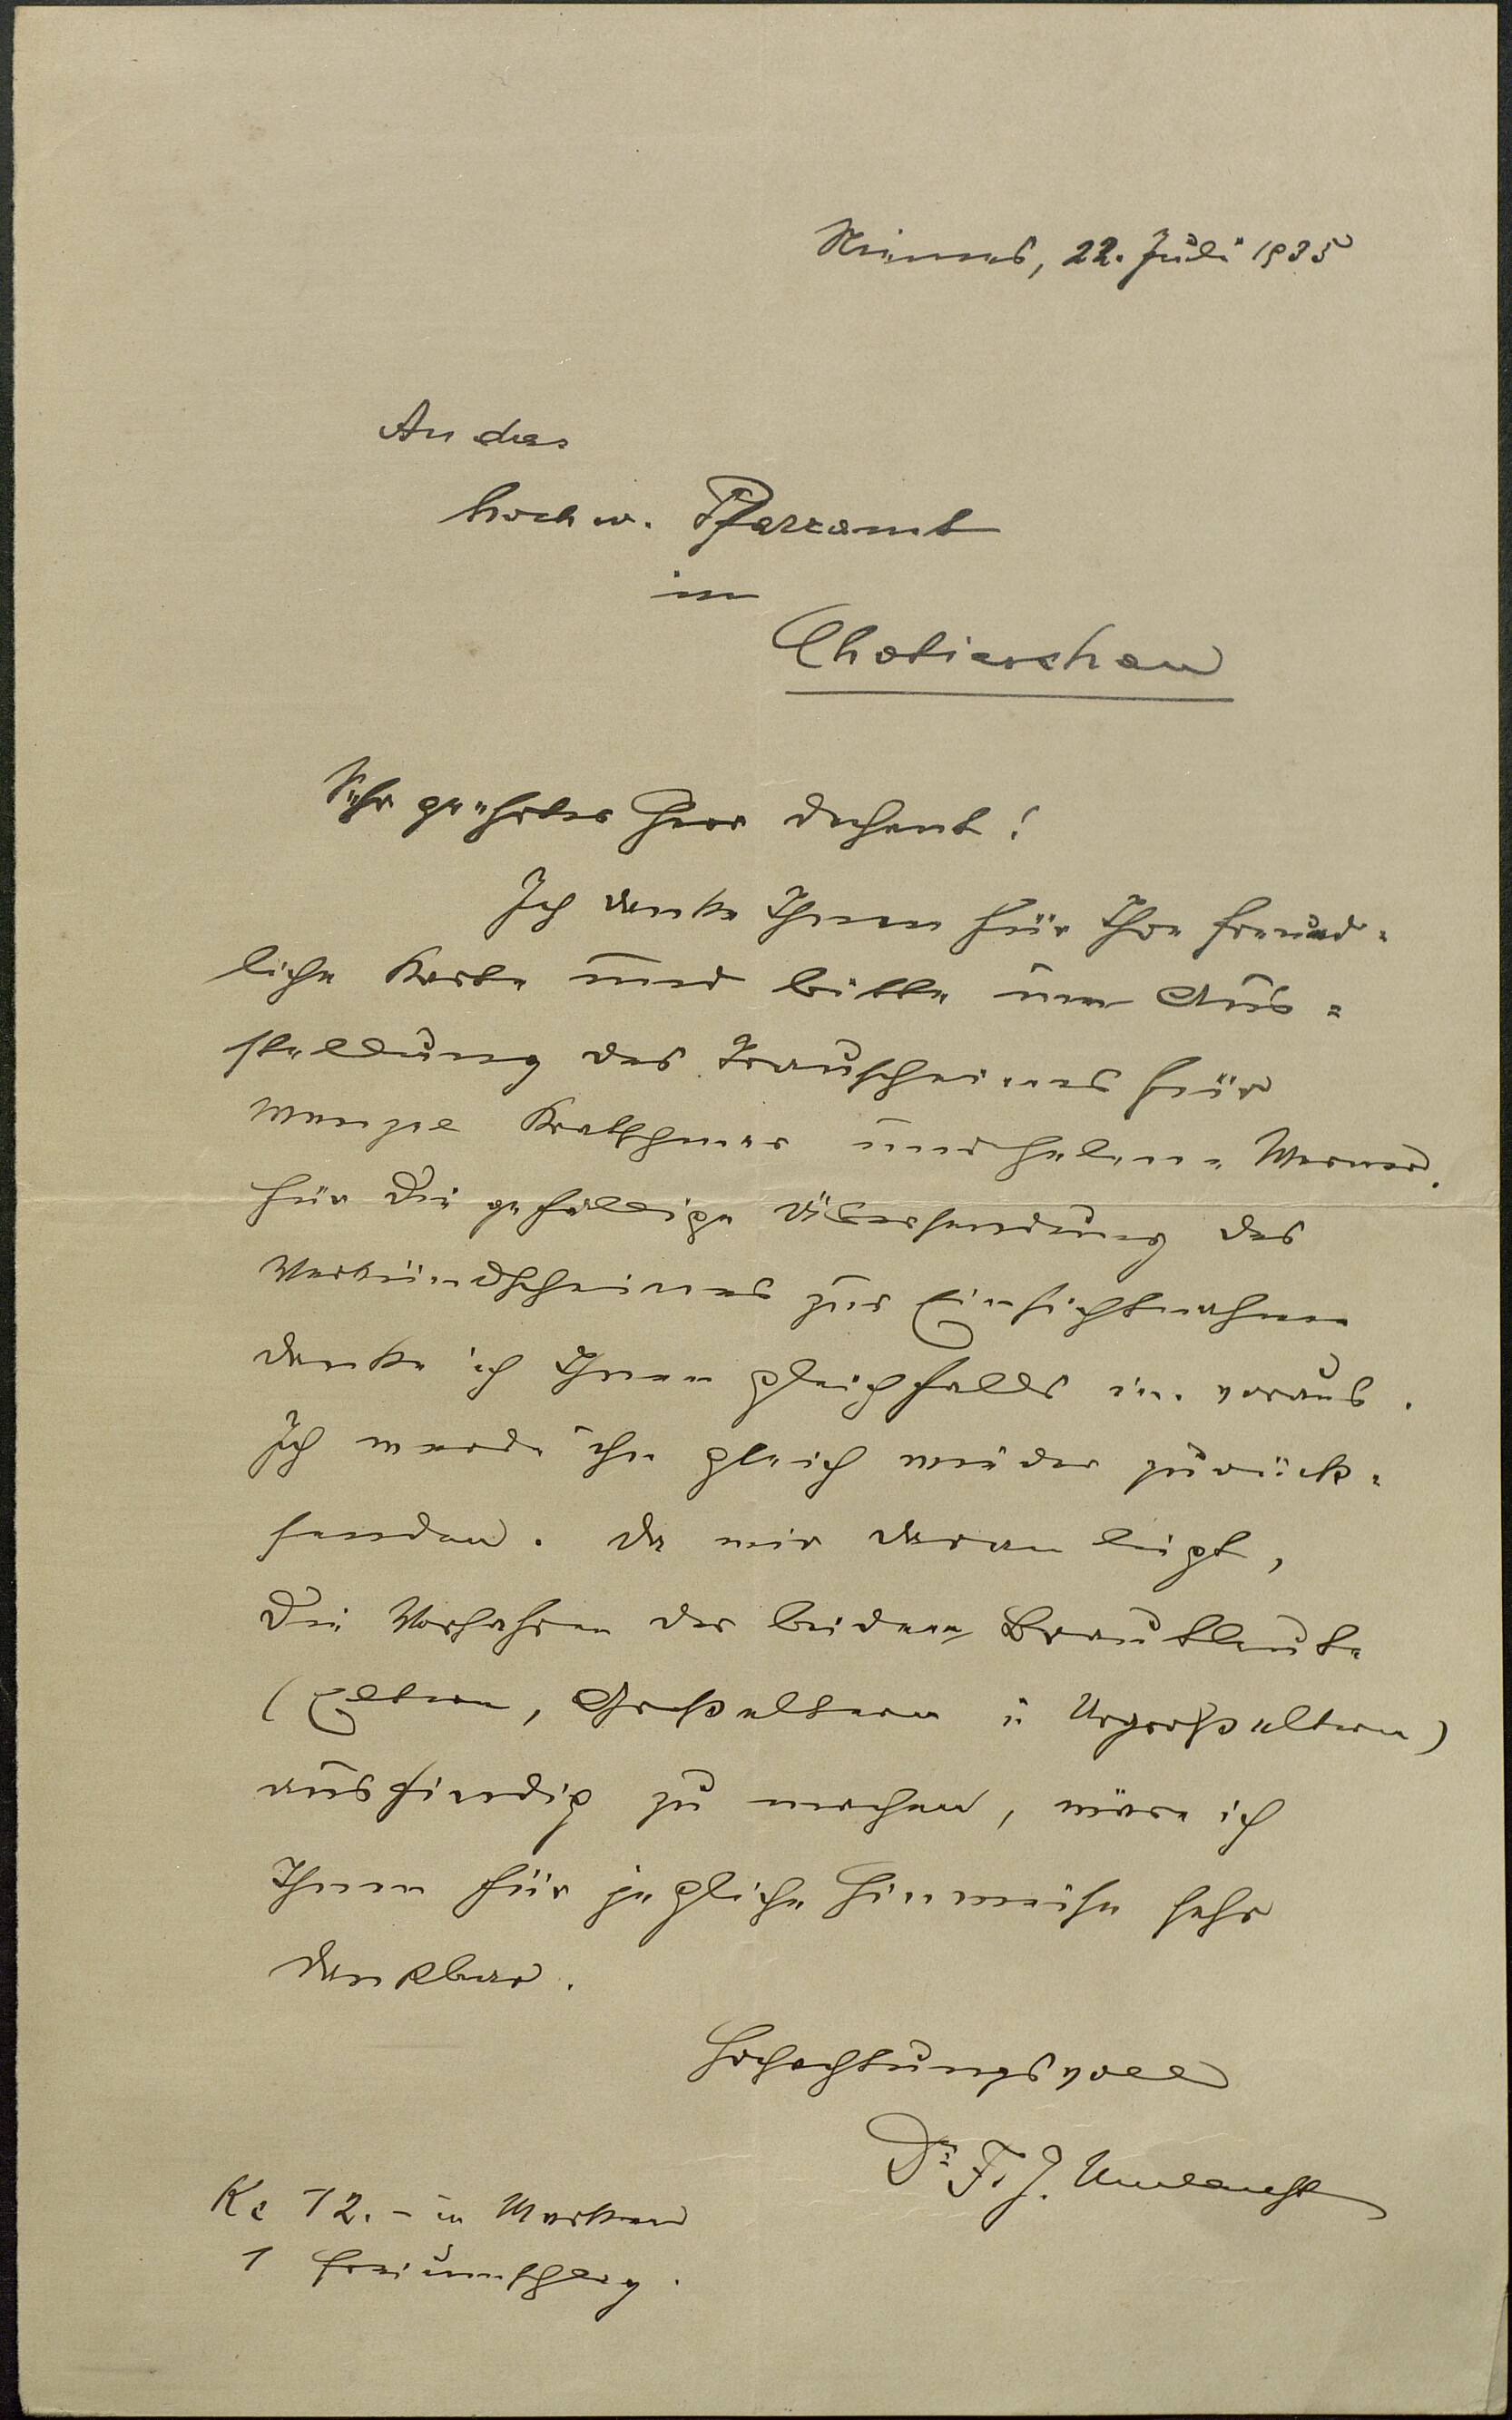 Niemes, 22. Juli 1935
An das
hochw. Pfarramt
in
Chotieschau
Sehr geehrter Herr Dechant!
Ich danke Ihnen für Ihre freund-
liche Karte und bitte um Aus-
stellung des Trauscheines für
Wenzel Kratschmer und Helene Werner.
Für die gefällige Übersendung des
Verkündscheines zur Einsichtnahme
danke ich Ihnen gleichfalls im voraus.
Ich werde ihn gleich wieder zurück-
senden. Da mir daran liegt,
die Vorfahren der beiden Brautleute
(Eltern, Großeltern u Urgroßeltern)
ausfindig zu machen, wäre ich
Ihnen für jegliche Hinweise sehr
dankbar.
Hochachtungsvoll
Dr F. J. Umlauft
Kc 12.- in Marken
1 Freiumschlag.